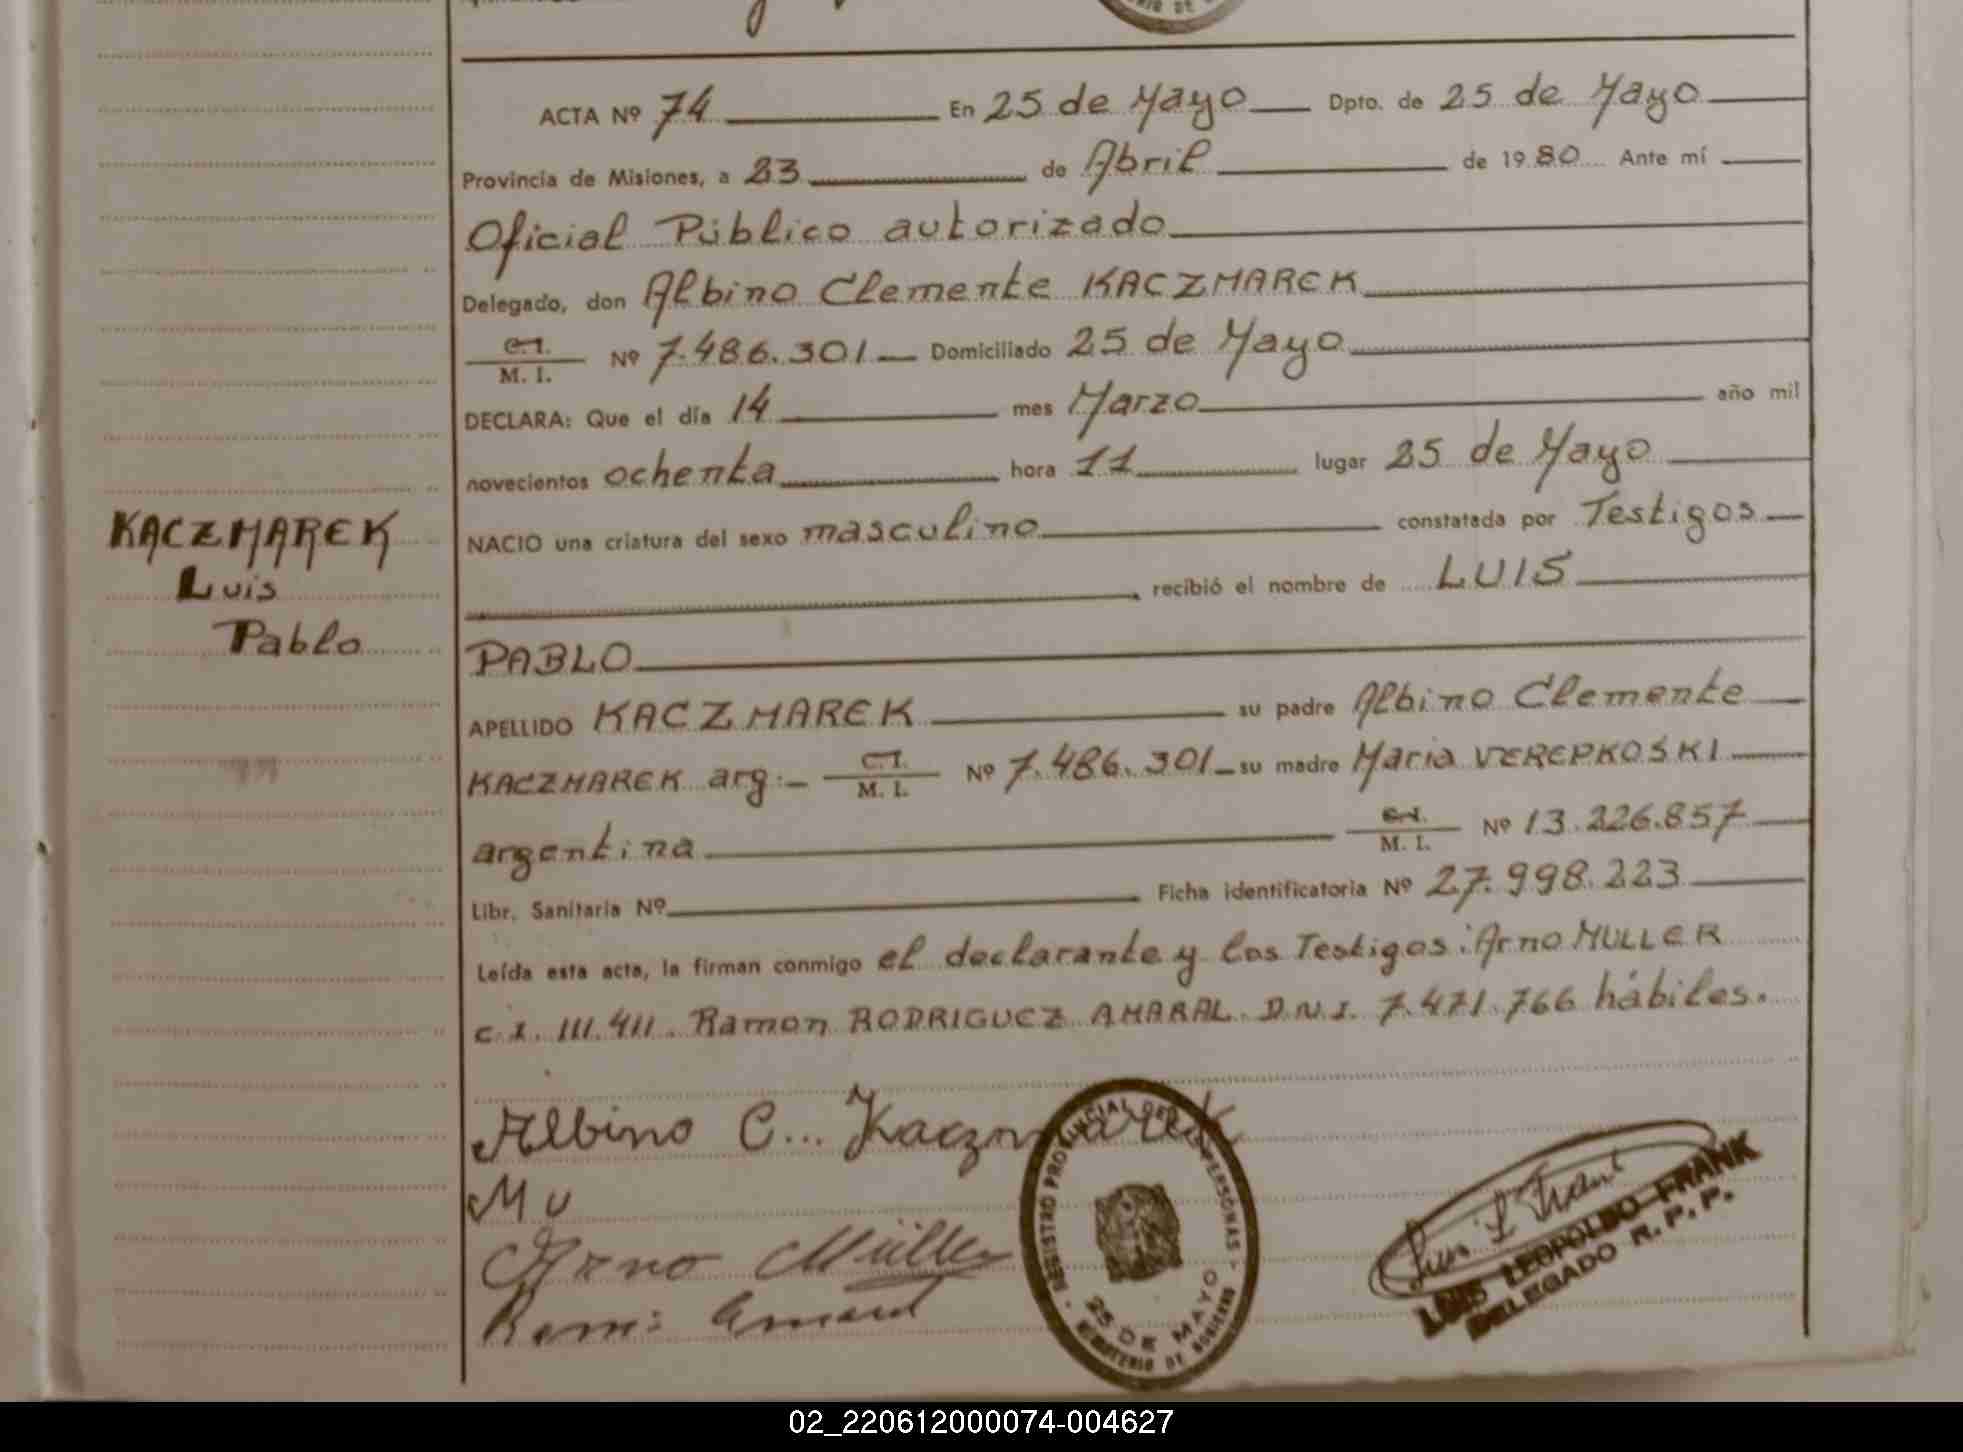 ACTA Nº 74 En 25 de Mayo Dpto. de 25 de Mayo
Provincia de Misiones, a 23 de Abril de 1980 Ante mí
Oficial Público autorizado
Delegado, don Albino Clemente KACZMAREK
C.I. M. I. Nº 7.486.301 Domiciliado 25 de Mayo
DECLARA: Que el día 14 mes Marzo año mil
novecientos ochenta hora 11 lugar 25 de Mayo
KACZMAREK
Luis
Pablo
NACIO una criatura del sexo masculino constatada por Testigos
recibió el nombre de LUIS
PABLO
APELLIDO KACZMAREK su padre Albino Clemente
KACZMAREK arg:- C.I. M. I. Nº 7.486.301 su madre Maria VEREPKOSKI
argentina C.I. M. I. Nº 13.226.857
Libr. Sanitaria Nº Ficha identificatoria Nº 27.998.223
Leída esta acta, la firman conmigo el declarante y los Testigos: Arno MULLER
C.I. 111.411. Ramon RODRIGUEZ AMARAL D.N.I. 7.471.766 hábiles.
Albino C... Kaczmarek
Mu
Arno Müller
REGISTRO PROVINCIAL DE LAS PERSONAS
25 DE MAYO
MINISTERIO DE GOBIERNO
LUIS LEOPOLDO FRANK
DELEGADO R. P. P.
02_220612000074-004627